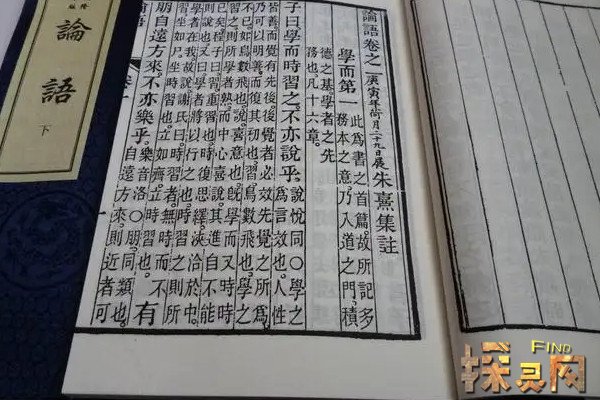 論語
下
論語卷之一 庚寅年荷月二十九日展 朱熹集註
學而第一 此爲書之首篇。故所記多
務本之意。乃入道之門。積
德之基。學者之先
務也。凡十六章。
子曰學而時習之。不亦說乎。說悅同○學之
爲言效也。人性
皆善。而覺有先後。後覺者必效先覺之所爲。
乃可以明善。而復其初也。習鳥數飛也。學之
不已。如鳥數飛也。說喜意也。旣學而又時時
習之。則所學者熟。而中心喜說。其進自不能
已矣。程子曰。習重習也。時復思繹。浹洽於中。
則說也。又曰。學者將以行之也。時習之。則所
學者在我。故說。謝氏曰。時習者。無時而不
習。坐如尸。坐時習也。立如齊。立時習也。有
朋自遠方來。不亦樂乎。樂音洛○朋。同類也。
自遠方來。則近者可
FIND
探灵网